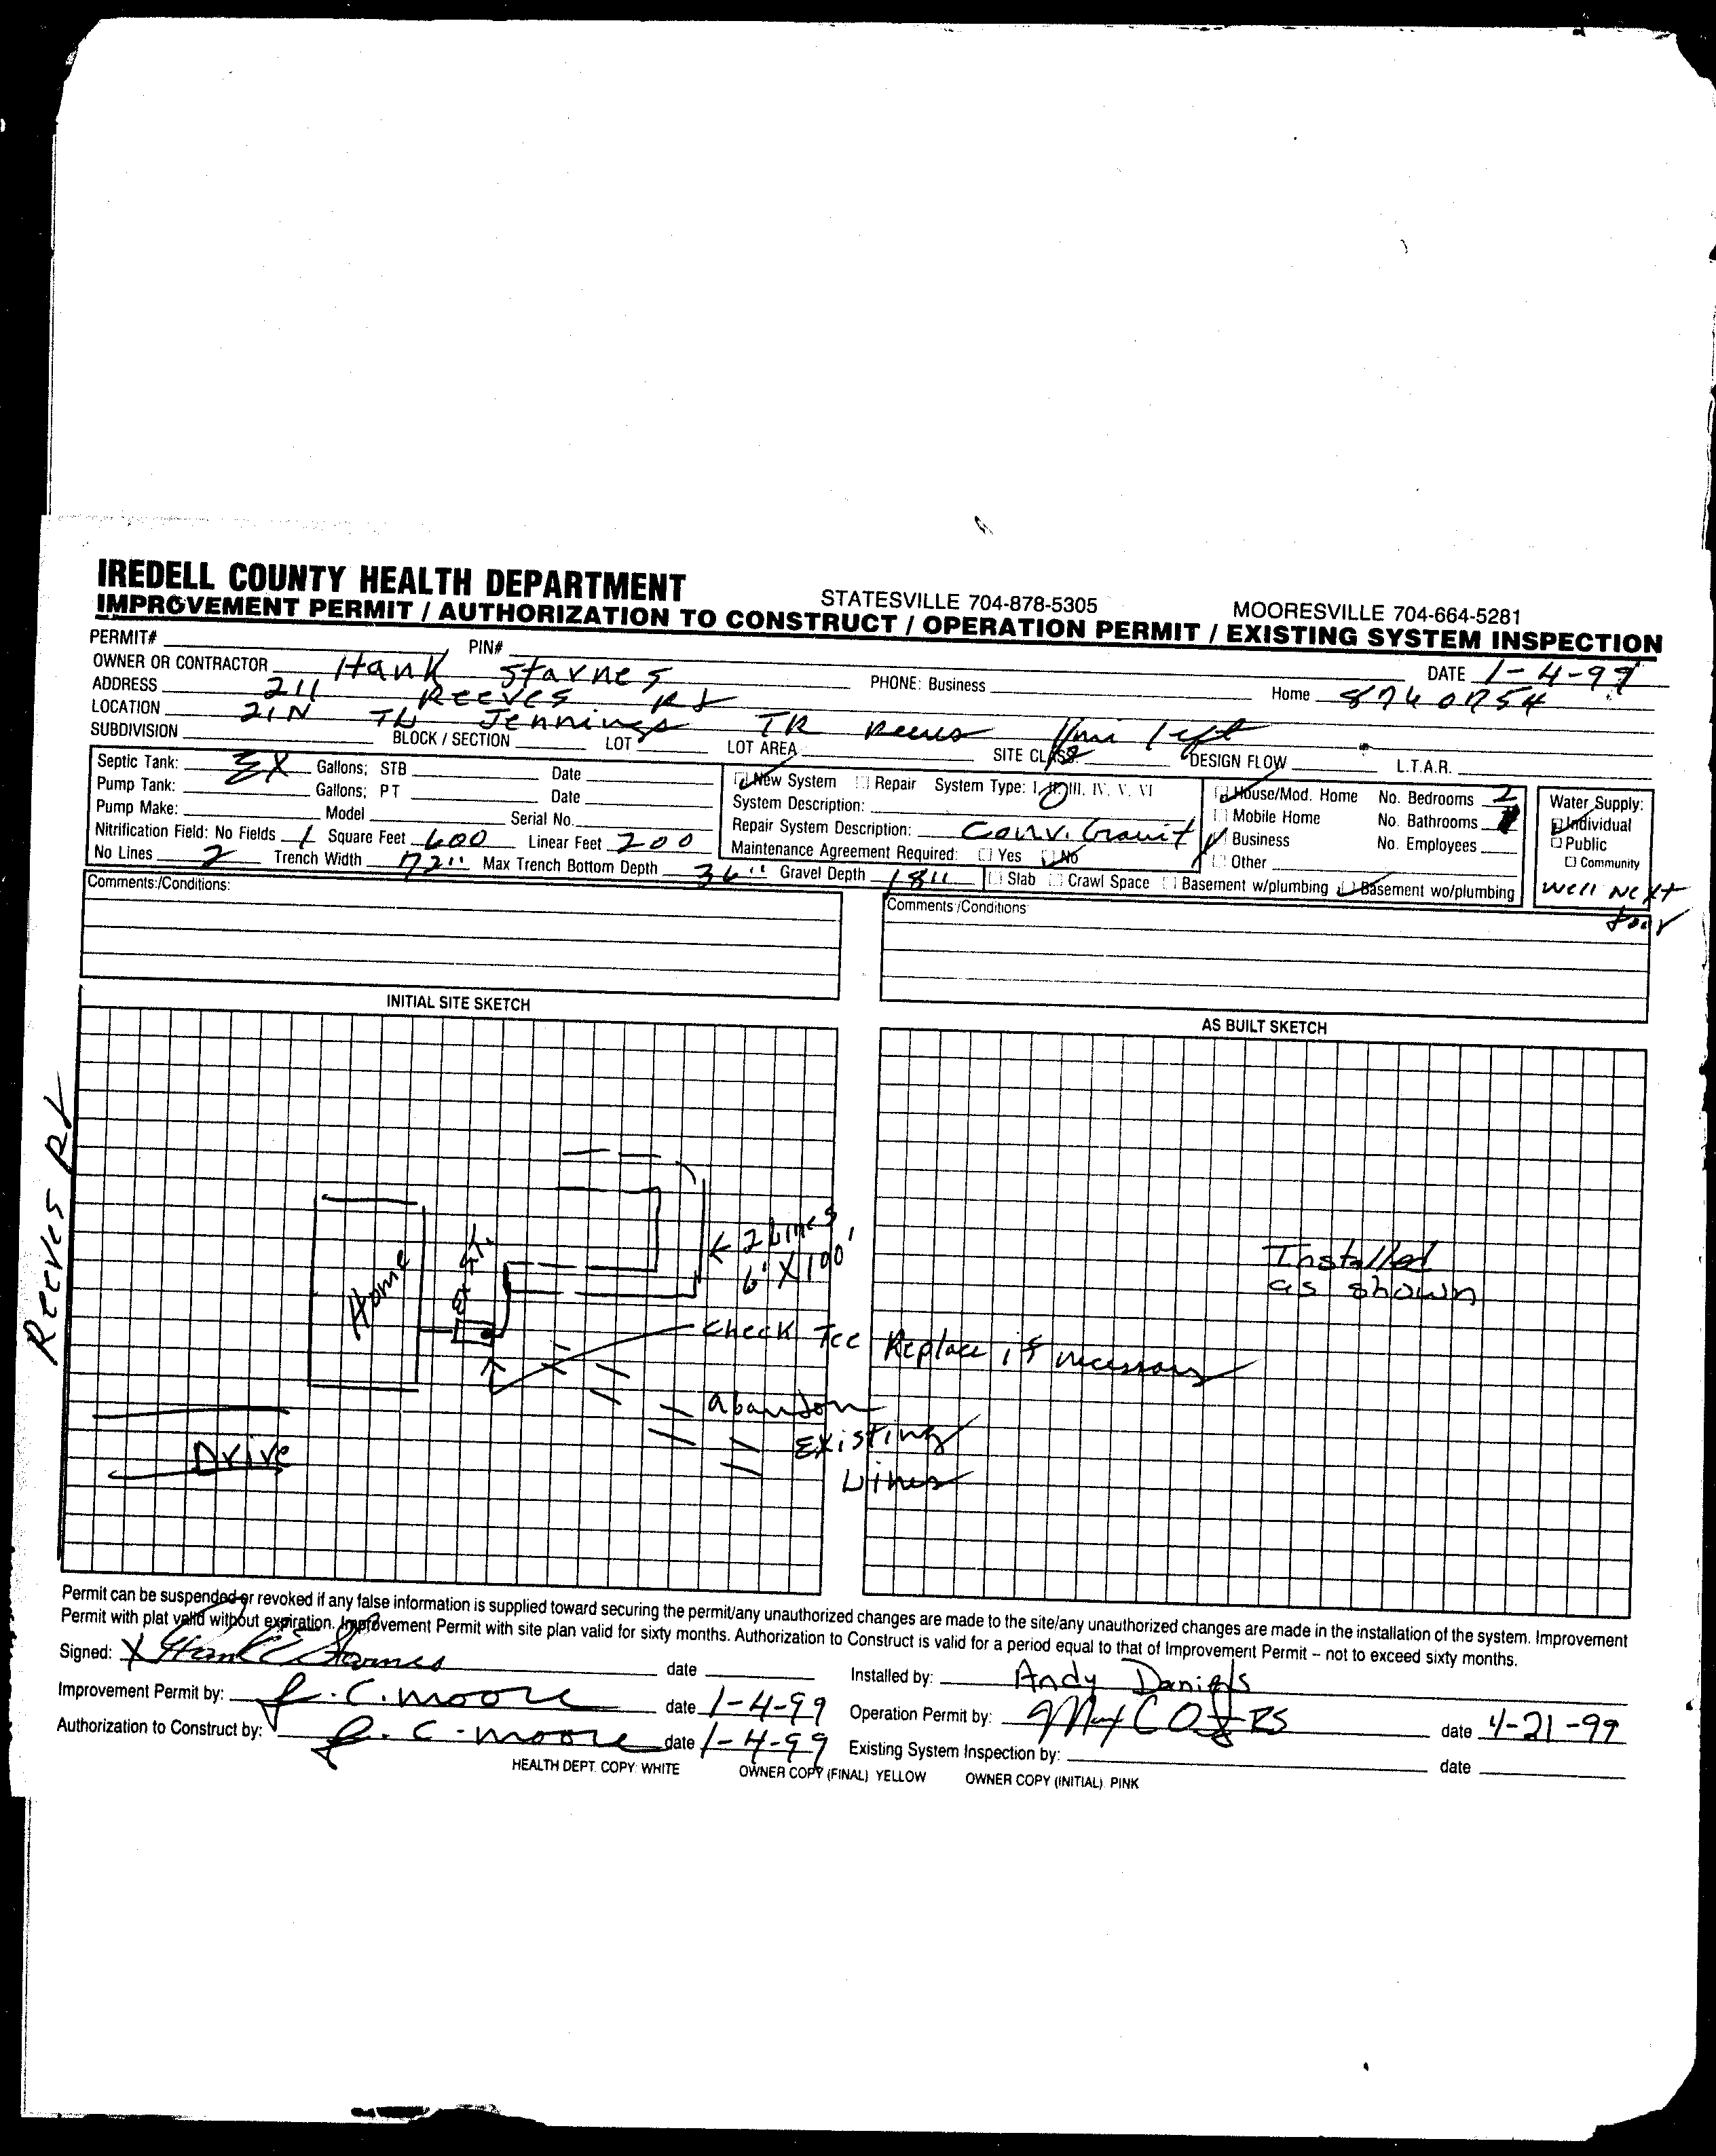 IREDELL COUNTY HEALTH DEPARTMENT STATESVILLE 704-878-5305 MOORESVILLE 704-664-5281
IMPROVEMENT PERMIT / AUTHORIZATION TO CONSTRUCT / OPERATION PERMIT / EXISTING SYSTEM INSPECTION
PERMIT# PIN# DATE 1-4-99
OWNER OR CONTRACTOR Hank Starnes PHONE: Business Home 8760754
ADDRESS 211 Reeves Rd
LOCATION 21N TL Jennings TR Reeves 1/mi left
SUBDIVISION BLOCK / SECTION LOT LOT AREA SITE CLASS DESIGN FLOW L.T.A.R.
Septic Tank: EX Gallons; STB Date
Pump Tank: Gallons; PT Date
Pump Make: Model Serial No.
Nitrification Field: No Fields 1 Square Feet 600 Linear Feet 200
No Lines 2 Trench Width 72" Max Trench Bottom Depth 36" Gravel Depth 18"
New System Repair System Type: I, II, III, IV, V, VI
System Description:
Repair System Description: Conv. Gravit
Maintenance Agreement Required: Yes No
House/Mod. Home No. Bedrooms 2
Mobile Home No. Bathrooms
Business No. Employees
Other
Slab Crawl Space Basement w/plumbing Basement wo/plumbing
Water Supply:
Individual
Public
Community
Well Next
door
Comments:/Conditions:
Comments:/Conditions
INITIAL SITE SKETCH
AS BUILT SKETCH
Reeves Rd
Home
Ex S.T.
2 Lines
6' X 100'
Check Tee Replace if necessary
abandon
Existing
Lines
Drive
Installed
as shown
Permit can be suspended or revoked if any false information is supplied toward securing the permit/any unauthorized changes are made to the site/any unauthorized changes are made in the installation of the system. Improvement
Permit with plat valid without expiration. Improvement Permit with site plan valid for sixty months. Authorization to Construct is valid for a period equal to that of Improvement Permit – not to exceed sixty months.
Signed: X Hank E Starnes date
Installed by: Andy Daniels
Improvement Permit by: J. C. Moore date 1-4-99
Operation Permit by: RS date 4-21-99
Authorization to Construct by: J. C. Moore date 1-4-99
Existing System Inspection by: date
HEALTH DEPT. COPY: WHITE OWNER COPY (FINAL) YELLOW OWNER COPY (INITIAL) PINK